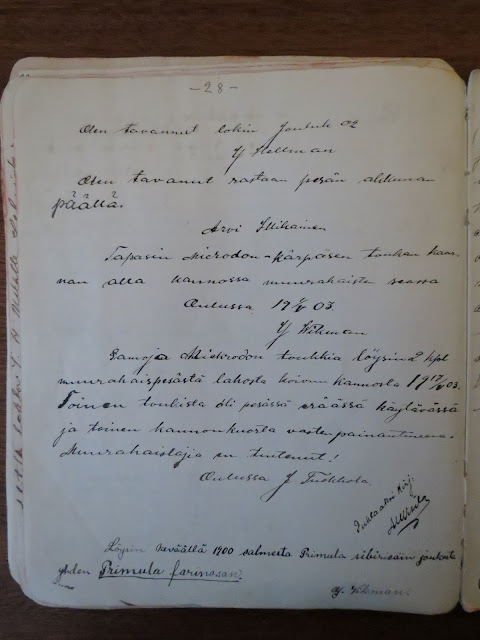 - 28 -
Olen tavannut lokin Jouluk 02
Y Hellman
Olen tavannut rastaan pesän akkunan
päällä.
Arvi
Tapasin Microdon-kärpäsen toukan kaar-
nan alla kannossa muurahaisten seassa
Oulussa 19 03.
Y Wikman
Samoja Microdon toukkia löysin 2 kpl
muurahaispesästä lahosta koivun kannosta 19 03.
Toinen toukista oli pesässä eräässä käytävässä
ja toinen kannonkuorta vasten painautuneena.
Muurahaislajia en tuntenut!
Oulussa J Tuokkola
Puhtaaksi kirj.
Löysin keväällä 1900 salmesta Primula sibirican joukosta
yhden Primula farinosan.
Y. Wikman.